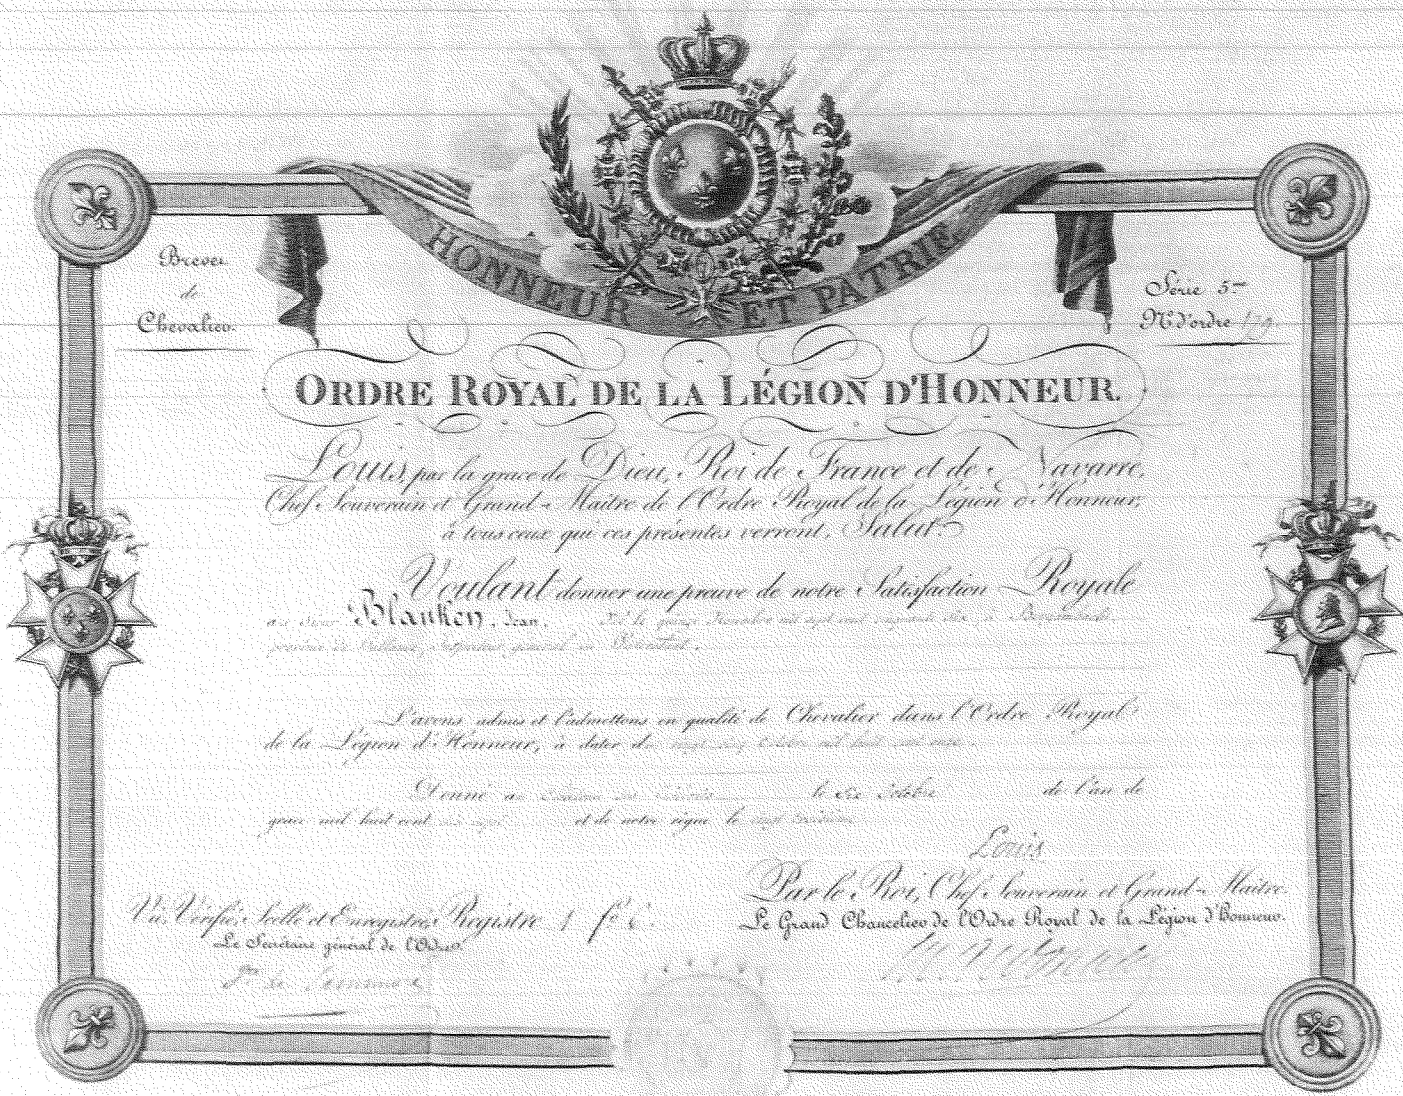 HONNEUR ET PATRIE
Brevet
de
Chevalier.
Série 5me
No d'ordre
ORDRE ROYAL DE LA LÉGION D'HONNEUR.
Louis, par la grace de Dieu, Roi de France et de Navarre,
Chef Souverain et Grand-Maitre de l'Ordre Royal de la Légion d'Honneur,
à tous ceux qui ces présentes verront, Salut.
Voulant donner une preuve de notre Satisfaction Royale
au Sieur Blanken, Jean, Né le quinze Novembre mil sept cent cinquante cinq, à
province de Hollande, Inspecteur général du Waterstaat.
L'avons admis et l'admettons en qualité de Chevalier dans l'Ordre Royal
de la Légion d'Honneur, à dater du vingt cinq Octobre mil huit cent onze.
Donné au Château des Tuileries le six Octobre de l'an de
grace mil huit cent dix sept et de notre règne le vingt troisième
Louis
Par le Roi, Chef Souverain et Grand-Maitre.
Le Grand Chancelier de l'Ordre Royal de la Légion d'honneur.
Vu, Vérifié, Scellé et Enregistré, Registre 1 fo 6.
Le Secrétaire général de l'Ordre.